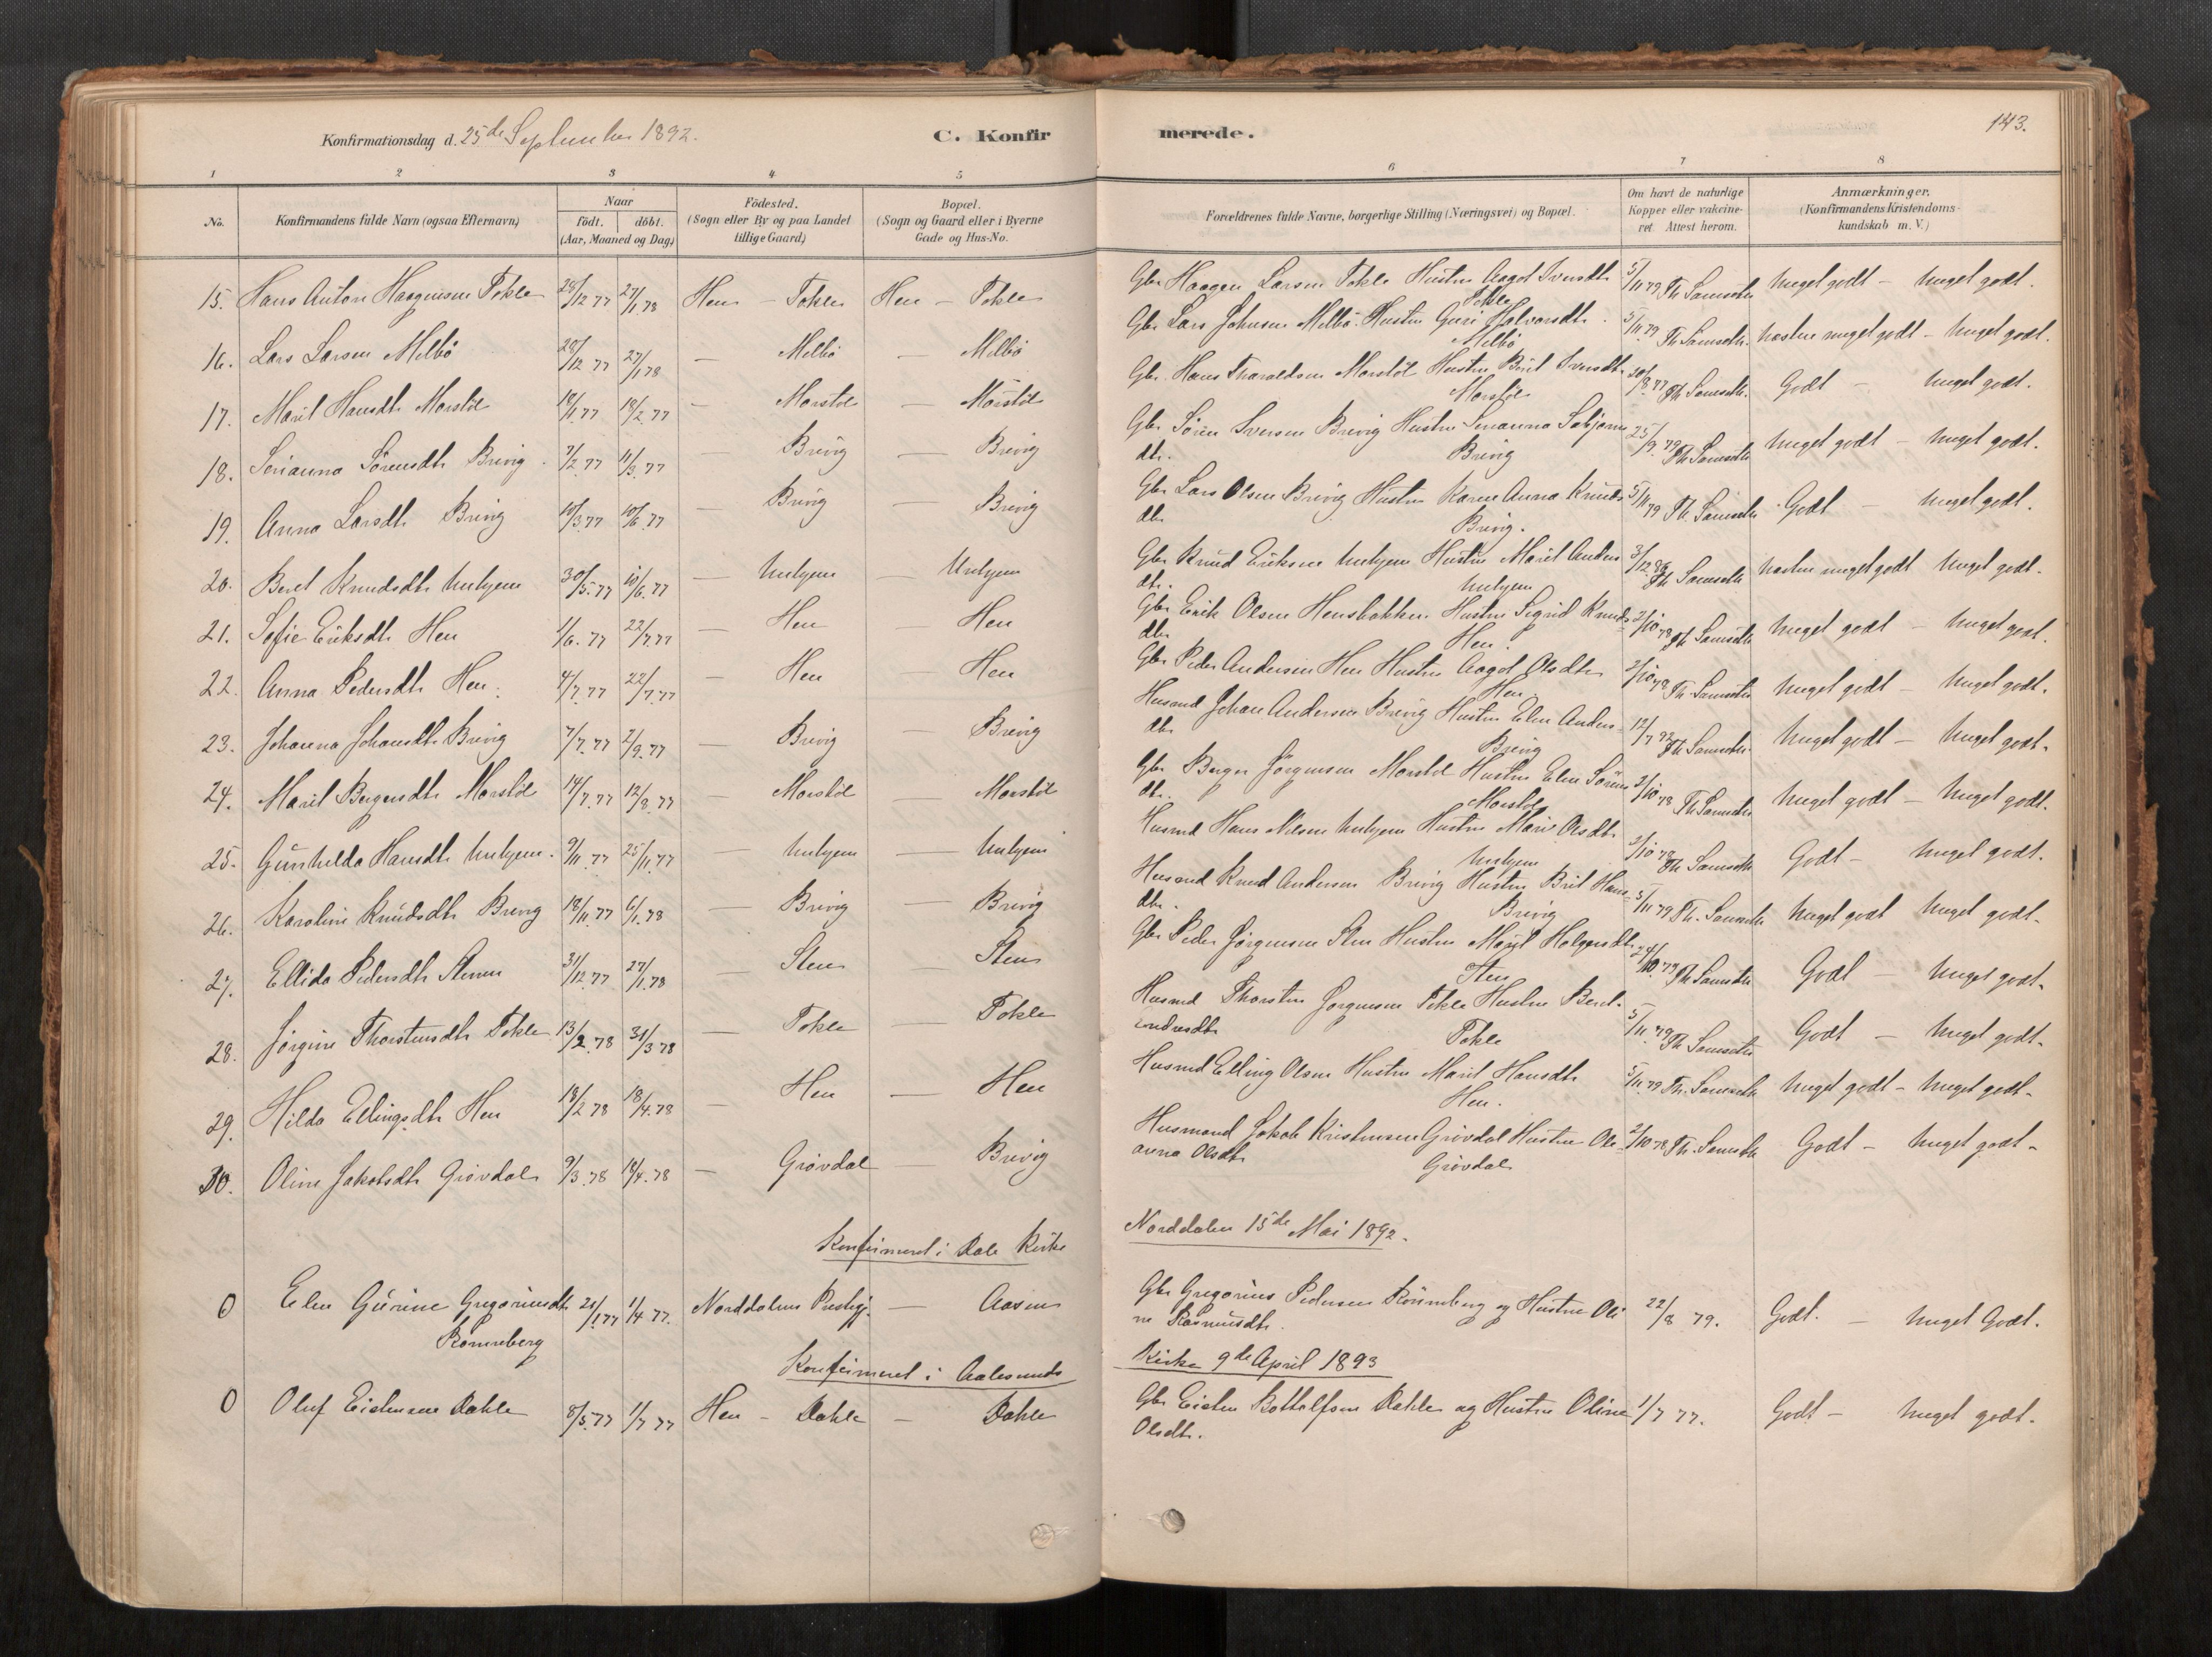 Konfirmationsdag d. 25de September 1892.
C. Konfirmerede.
143.
1 2 3 4 5 6 7 8
No.
Konfirmandens fulde Navn (ogsaa Efternavn)
Naar
födt. döbt.
(Aar, Maaned og Dag)
Födested.
(Sogn eller By og paa Landet
tillige Gaard)
Bopæl.
(Sogn og Gaard eller i Byerne
Gade og Hus-No.
Forældrenes fulde Navne, borgerlige Stilling (Næringsvei) og Bopæl.
Om havt de naturlige
Kopper eller vakcine-
ret. Attest herom.
Anmærkninger.
(Konfirmandens Kristendoms-
kundskab m. V.)
15. Hans Anton Haagensen Tokle 28/12 77 27/1 78 Hen - Tokle Hen - Tokle Gbr Haagen Larsen Tokle Hustru Aagot Iversdtr 5/11 79 Th Samseth Meget godt - Meget godt.
Tokle
16. Lars Larsen Melbö 28/12 77 27/1 78 — Melbö — Melbö Gbr Lars Johnsen Melbö Hustru Guri Halvorsdtr 5/11 79 Th Samseth. Næsten meget godt - Meget godt.
Melbö
17. Marit Hansdtr Morstöl 18/1 77 18/2 77 — Morstöl — Morstöl Gbr. Hans Tharaldsen Morstöl Hustru Brit Iversdtr 30/8 77 Th Samseth. Godt — Meget godt.
Morstöl
18. Serianna Sörensdtr Brevig 7/2 77 11/3 77 — Brevig — Brevig Gbr Sören Iversen Brevig Hustru Serianna Esbjörns 25/9 79 Th Samseth Meget godt - Meget godt.
dtr. Brevig
19. Anna Larsdtr Brevig 10/3 77 10/6 77 — Brevig — Brevig Gbr Lars Olsen Brevig Hustru Karen Anna Knuds 5/11 79 Th. Samseth Godt — Meget godt.
dtr Brevig.
20. Beret Knudsdtr Unhjem 30/5 77 10/6 77 — Unhjem — Unhjem Gbr Knud Eriksen Unhjem Hustru Marit Anders Th Samseth Næsten meget godt Meget godt.
dtr. Unhjem
21. Sofie Eriksdtr Hen 1/6. 77 22/7 77 — Hen Hen Gbr Erik Olsen Hensbakken Hustru Sigrid Knuds 2/10 78 Th Samseth Meget godt — Meget godt.
dtr Hen.
22. Anna Pedersdtr Hen. 4/7 77 22/7 77 — Hen Hen Gbr Peder Andersen Hen Hustru Aagot Olsdtr 2/10 78 Th. Samseth Meget godt — Meget godt.
Hen
23. Johanna Johansdtr Brevig 7/7. 77 2/9. 77 — Brevig — Brevig Husmd Johan Andersen Brevig Hustru Elen Anders 12/7 92 Th Samseth. Meget godt — Meget godt.
dtr Brevig
24. Marit Bergersdtr Morstöl 14/7. 77 12/8. 77 — Morstöl — Morstöl Gbr Berger Jörgensen Morstöl Hustru Elen Sörens 2/10 78 Th Samseth Meget godt — Meget godt.
dtr. Morstöl
25. Gunhilda Hansdtr Unhjem. 9/11 77 25/11 77 — Unhjem — Unhjem Husmd Hans Nilsen Unhjem Hustru Marie Olsdtr 2/10 78 Th Samseth Godt — Meget godt.
Unhjem
26. Karoline Knudsdtr Brevig 18/11. 77 6/1. 78 — Brevig — Brevig Husmd Knud Andersen Brevig Hustru Brit Hans 5/11 79 Th. Samseth Meget godt Meget godt.
dtr. Brevig
27. Ellida Pedersdtr Stenen 31/12 77 27/1. 78 — Sten — Sten Gbr Peder Jörgensen Sten Hustru Marit Holgersdtr 24/10. 79 Th Samseth Godt — Meget godt.
Sten
28. Jörgine Thorstensdtr Tokle 13/2. 78 31/3 78 — Tokle — Tokle Husmd Thorsten Jörgensen Tokle Hustru Beret 5/11. 79 Th Samseth Godt — Meget godt.
Endresdtr Tokle
29. Hilda Ellingsdtr Hen 18/2 78 18/4. 78 — Hen — Hen Husmd Elling Olsen Hustru Marit Hansdtr 5/11. 79 Th. Samseth Meget godt — Meget godt.
Hen.
30. Oline Jakobsdtr Grövdal 9/3. 78 18/4. 78 — Grövdal Brevig Husmand Jakob Kristensen Grövdal Hustru Ole 2/10 78 Th. Samseth Godt — Meget godt.
anna Olsdtr Grövdal
Konfirmeret i Dale Kirke Norddalen 15de Mai 1892.
0 Elen Gurine Gregoriusdtr 21/1 77 1/4 77. Norddalens Prestegj. — Aasen Gbr Gregorius Pedersen Rönneberg og Hustru Oli 22/8 79. Godt. — Meget Godt.
Rönneberg ne Rasmusdtr.
Konfirmeret i Aalesunds Kirke 9de April 1893
0 Oluf Eistensen Dahle 8/5. 77 1/7 77 Hen - Dahle — Dahle Gbr Eisten Bottolfsen Dahle og Hustru Oline 1/7 77. Godt — Meget godt.
Olsdtr.